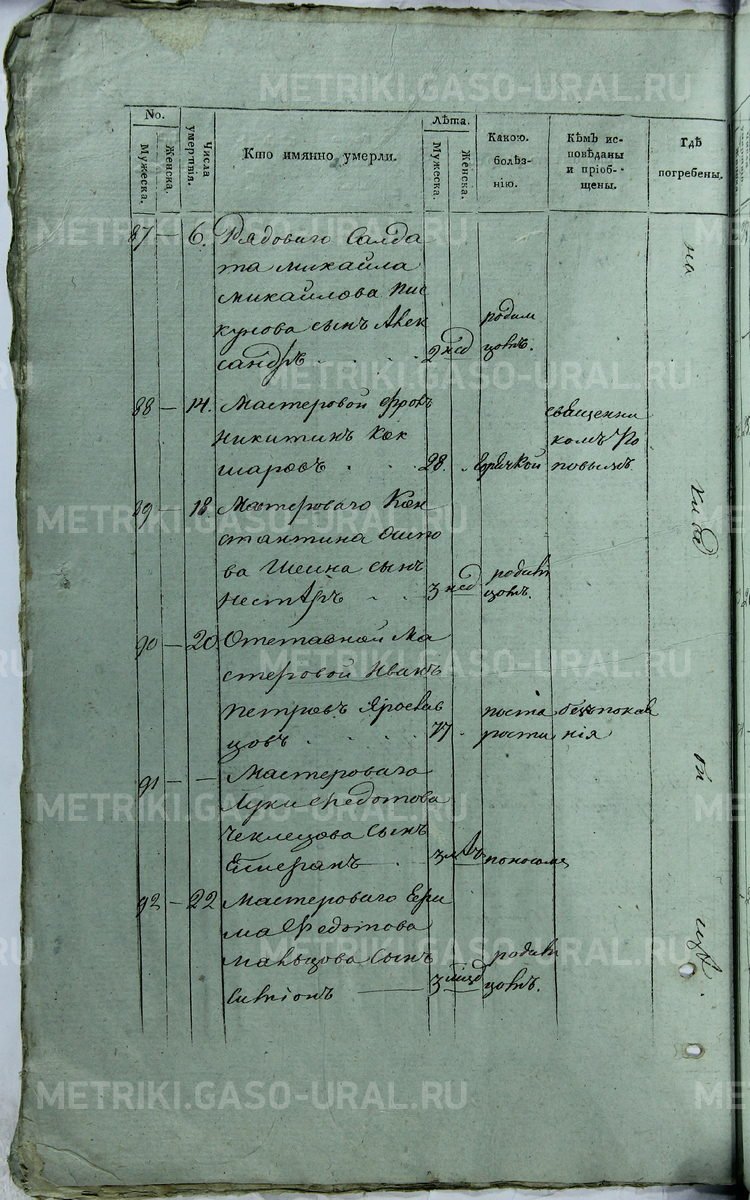 METRIKI.GASO-URAL.RU
No.
Мужеска.
Женска.
Числа умертвія.
Кто имянно умерли.
Лѣта.
Мужеска.
Женска.
Какою болѣз-
нію.
Кѣмъ ис-
повѣданы
и пріоб-
щены.
Гдѣ
погребены.
87 — 6. Рядоваго Салда
та Михайла
Михайлова Пис
кунова сынъ Алек
сандръ
2 нед
родим
цомъ.
88 — 14. Мастеровой Фролъ
Никитинъ Кок
шаровъ
28.
Горячкой
священни
комъ По
повымъ
89 — 18. Мастероваго Кон
стантина Осипо
ва Шеина сынъ
Несторъ
3 нед
родим
цомъ.
90 — 20 Отставной Ма
стеровой Иванъ
Петровъ Яросвав
цовъ
77.
поста
рости
безъ покая
нія
91 — Мастероваго
Луки Федотова
Чеклецова сынъ
3
поносомъ
92 — 22 Мастероваго Ефи
ма Федотова
Мальцова сынъ
3 мѣсц
родим
цомъ.
на